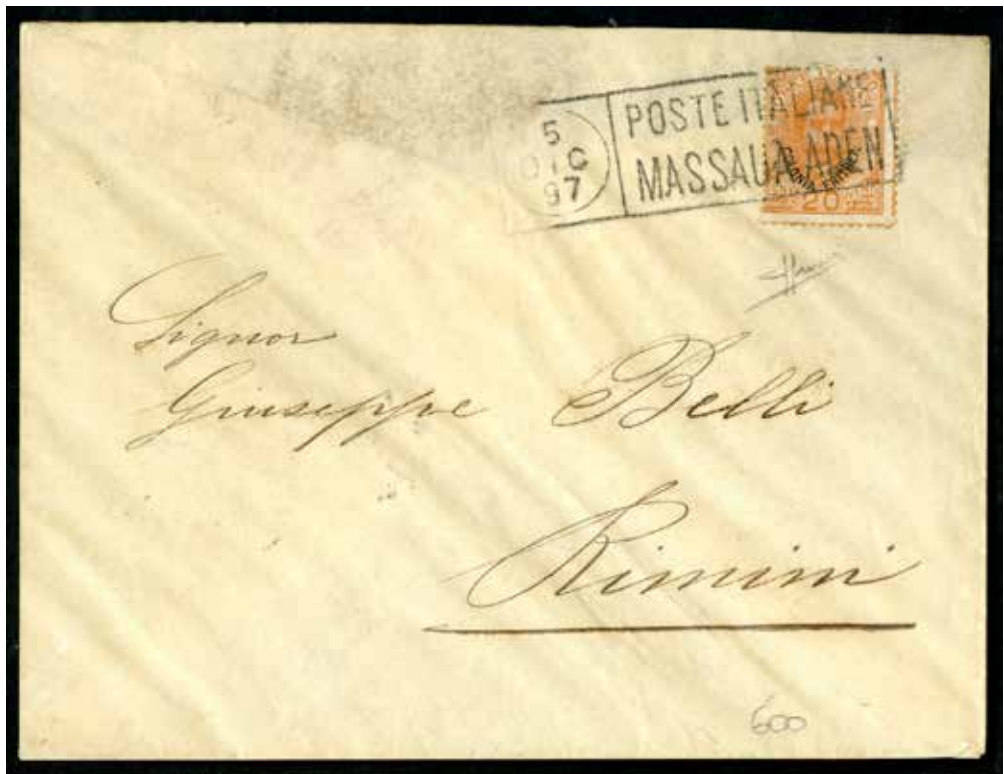 5
DIC
97
POSTE ITALIANE
MASSAUA-ADEN
COLONIA ERITREA
20
Signor
Giuseppe Belli
Rimini
600